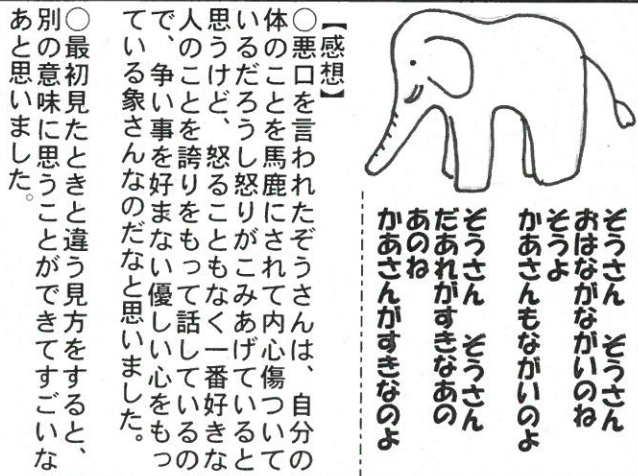 ぞうさん　ぞうさん
おはながながいのね
そうよ
かあさんもながいのよ
ぞうさん　ぞうさん
だあれがすきなあの
あのね
かあさんがすきなのよ
【感想】
○悪口を言われたぞうさんは、自分の
体のことを馬鹿にされて内心傷ついて
いるだろうし怒りがこみあげていると
思うけど、怒ることもなく一番好きな
人のことを誇りをもって話しているの
で、争い事を好まない優しい心をもっ
ている象さんなのだなと思いました。
○最初見たときと違う見方をすると、
別の意味に思うことができてすごいな
あと思いました。